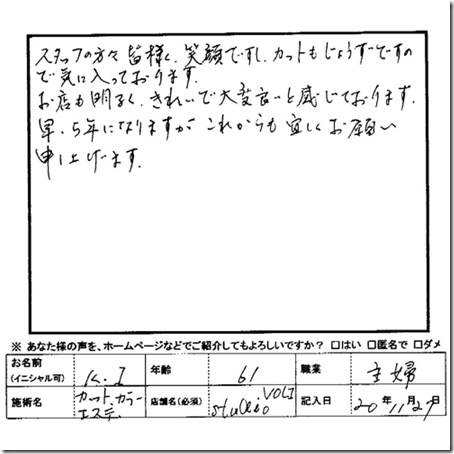 スタッフの方々皆様く、笑顔ですし、カットもじょうずですの
で気に入っております。
お店も明るく、きれいで大変良いと感じております。
早、5年になりますが これからも宜しくお願い
申し上げます。
※ あなた様の声を、ホームページなどでご紹介してもよろしいですか？ □はい □匿名で □ダメ
お名前
(イニシャル可) K.I 年齢 61 職業 主婦
施術名 カット、カラー
エステ 店舗名(必須) studio VOLI 記入日 20年11月27日